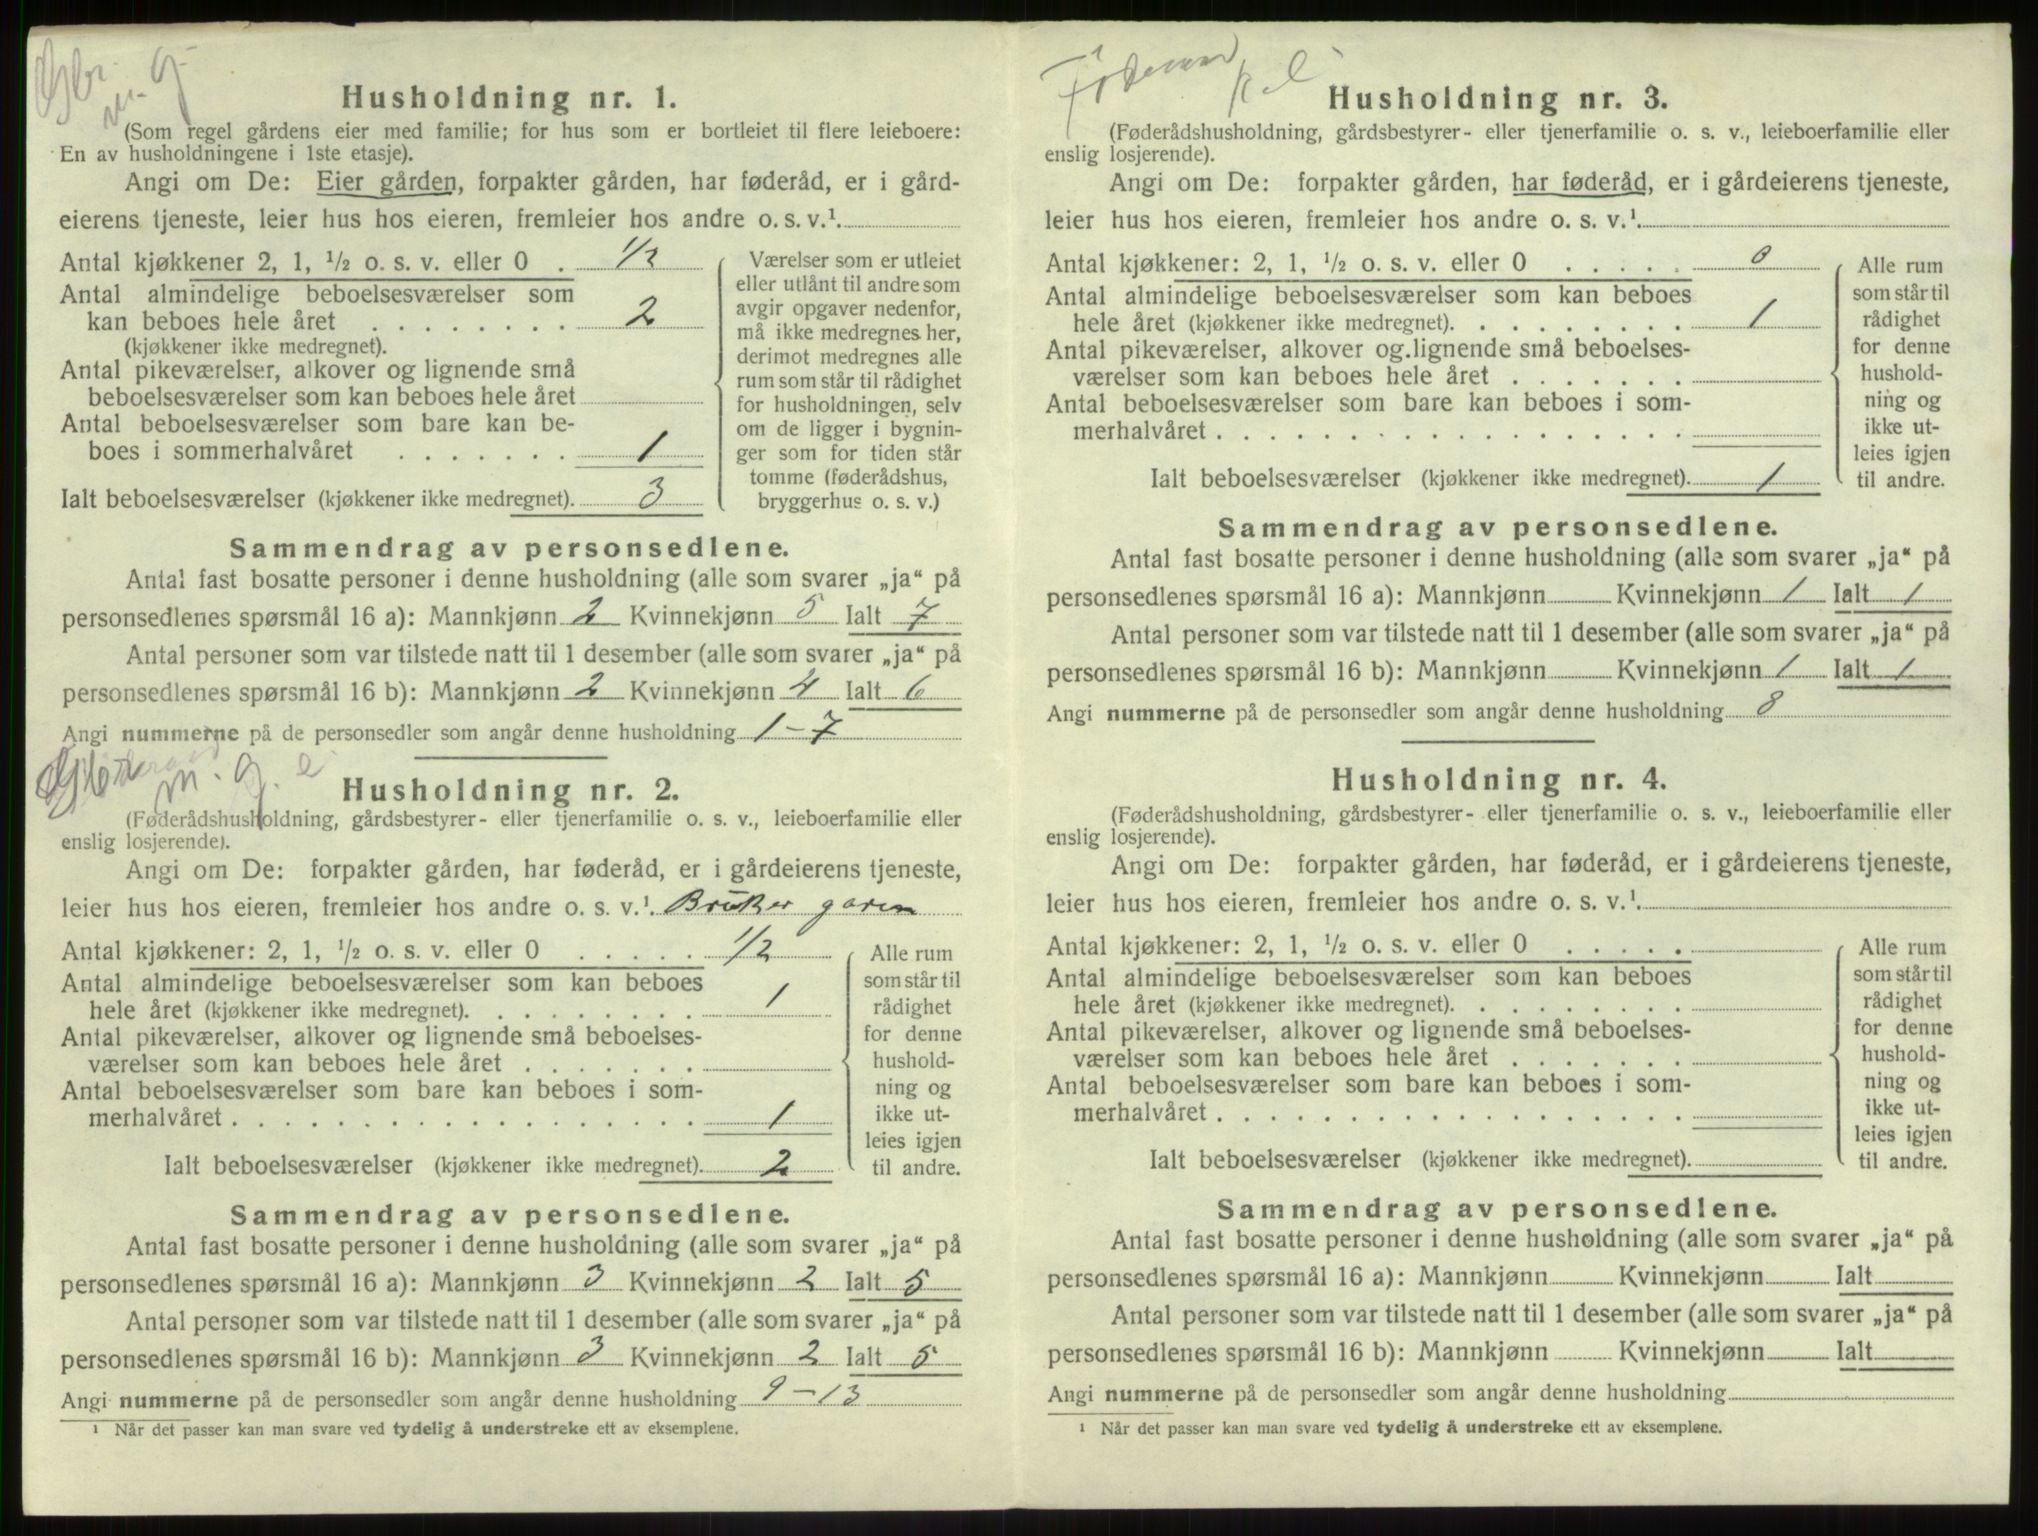 Husholdning nr. 1.
(Som regel gårdens eier med familie; for hus som er bortleiet til flere leieboere:
En av husholdningene i 1ste etasje).
Angi om De: Eier gården, forpakter gården, har føderåd, er i gård-
eierens tjeneste, leier hus hos eieren, fremleier hos andre o. s. v.¹.
Antal kjøkkener 2, 1, ½ o. s. v. eller 0 . 1/2
Antal almindelige beboelsesværelser som
kan beboes hele året . . . . . . . . 2
(kjøkkener ikke medregnet).
Antal pikeværelser, alkover og lignende små
beboelsesværelser som kan beboes hele året
Antal beboelsesværelser som bare kan be-
boes i sommerhalvåret . . . . . . . 1
Ialt beboelsesværelser (kjøkkener ikke medregnet). 3
Værelser som er utleiet
eller utlånt til andre som
avgir opgaver nedenfor,
må ikke medregnes her,
derimot medregnes alle
rum som står til rådighet
for husholdningen, selv
om de ligger i bygnin-
ger som for tiden står
tomme (føderådshus,
bryggerhus o. s. v.)
Sammendrag av personsedlene.
Antal fast bosatte personer i denne husholdning (alle som svarer „ja“ på
personsedlenes spørsmål 16 a): Mannkjønn 2 Kvinnekjønn 5 Ialt 7
Antal personer som var tilstede natt til 1 desember (alle som svarer „ja“ på
personsedlenes spørsmål 16 b): Mannkjønn 2 Kvinnekjønn 4 Ialt 6
Angi nummerne på de personsedler som angår denne husholdning 1-7
m. g. e
Husholdning nr. 2.
(Føderådshusholdning, gårdsbestyrer- eller tjenerfamilie o. s. v., leieboerfamilie eller
enslig losjerende).
Angi om De: forpakter gården, har føderåd, er i gårdeierens tjeneste,
leier hus hos eieren, fremleier hos andre o. s. v.¹. Bruker garen
Antal kjøkkener: 2, 1, ½ o. s. v. eller 0 . . . . . 1/2
Antal almindelige beboelsesværelser som kan beboes
hele året (kjøkkener ikke medregnet). . . . . . . . . 1
Antal pikeværelser, alkover og lignende små beboelses-
værelser som kan beboes hele året . . . . . . .
Antal beboelsesværelser som bare kan beboes i som-
merhalvåret . . . . . . . . . . . . . . . . 1
Ialt beboelsesværelser (kjøkkener ikke medregnet). 2
Alle rum
som står til
rådighet
for denne
hushold-
ning og
ikke ut-
leies igjen
til andre.
Sammendrag av personsedlene.
Antal fast bosatte personer i denne husholdning (alle som svarer „ja“ på
personsedlenes spørsmål 16 a): Mannkjønn 3 Kvinnekjønn 2 Ialt 5
Antal personer som var tilstede natt til 1 desember (alle som svarer „ja“ på
personsedlenes spørsmål 16 b): Mannkjønn 3 Kvinnekjønn 2 Ialt 5
Angi nummerne på de personsedler som angår denne husholdning 9-13
¹ Når det passer kan man svare ved tydelig å understreke ett av eksemplene.
Husholdning nr. 3.
(Føderådshusholdning, gårdsbestyrer- eller tjenerfamilie o. s. v., leieboerfamilie eller
enslig losjerende).
Angi om De: forpakter gården, har føderåd, er i gårdeierens tjeneste,
leier hus hos eieren, fremleier hos andre o. s. v.¹.
Antal kjøkkener: 2, 1, ½ o. s. v. eller 0 . . . . . 0
Antal almindelige beboelsesværelser som kan beboes
hele året (kjøkkener ikke medregnet). . . . . . . . . 1
Antal pikeværelser, alkover og lignende små beboelses-
værelser som kan beboes hele året . . . . . . .
Antal beboelsesværelser som bare kan beboes i som-
merhalvåret . . . . . . . . . . . . . . . .
Ialt beboelsesværelser (kjøkkener ikke medregnet). 1
Alle rum
som står til
rådighet
for denne
hushold-
ning og
ikke ut-
leies igjen
til andre.
Sammendrag av personsedlene.
Antal fast bosatte personer i denne husholdning (alle som svarer „ja“ på
personsedlenes spørsmål 16 a): Mannkjønn Kvinnekjønn 1 Ialt 1
Antal personer som var tilstede natt til 1 desember (alle som svarer „ja“ på
personsedlenes spørsmål 16 b): Mannkjønn Kvinnekjønn 1 Ialt 1
Angi nummerne på de personsedler som angår denne husholdning 8
Husholdning nr. 4.
(Føderådshusholdning, gårdsbestyrer- eller tjenerfamilie o. s. v., leieboerfamilie eller
enslig losjerende).
Angi om De: forpakter gården, har føderåd, er i gårdeierens tjeneste,
leier hus hos eieren, fremleier hos andre o. s. v.¹.
Antal kjøkkener: 2, 1, ½ o. s. v. eller 0 . . . . .
Antal almindelige beboelsesværelser som kan beboes
hele året (kjøkkener ikke medregnet). . . . . . . . .
Antal pikeværelser, alkover og lignende små beboelses-
værelser som kan beboes hele året . . . . . . .
Antal beboelsesværelser som bare kan beboes i som-
merhalvåret . . . . . . . . . . . . . . . .
Ialt beboelsesværelser (kjøkkener ikke medregnet).
Alle rum
som står til
rådighet
for denne
hushold-
ning og
ikke ut-
leies igjen
til andre.
Sammendrag av personsedlene.
Antal fast bosatte personer i denne husholdning (alle som svarer „ja“ på
personsedlenes spørsmål 16 a): Mannkjønn Kvinnekjønn Ialt
Antal personer som var tilstede natt til 1 desember (alle som svarer „ja“ på
personsedlenes spørsmål 16 b): Mannkjønn Kvinnekjønn Ialt
Angi nummerne på de personsedler som angår denne husholdning
¹ Når det passer kan man svare ved tydelig å understreke ett av eksemplene.